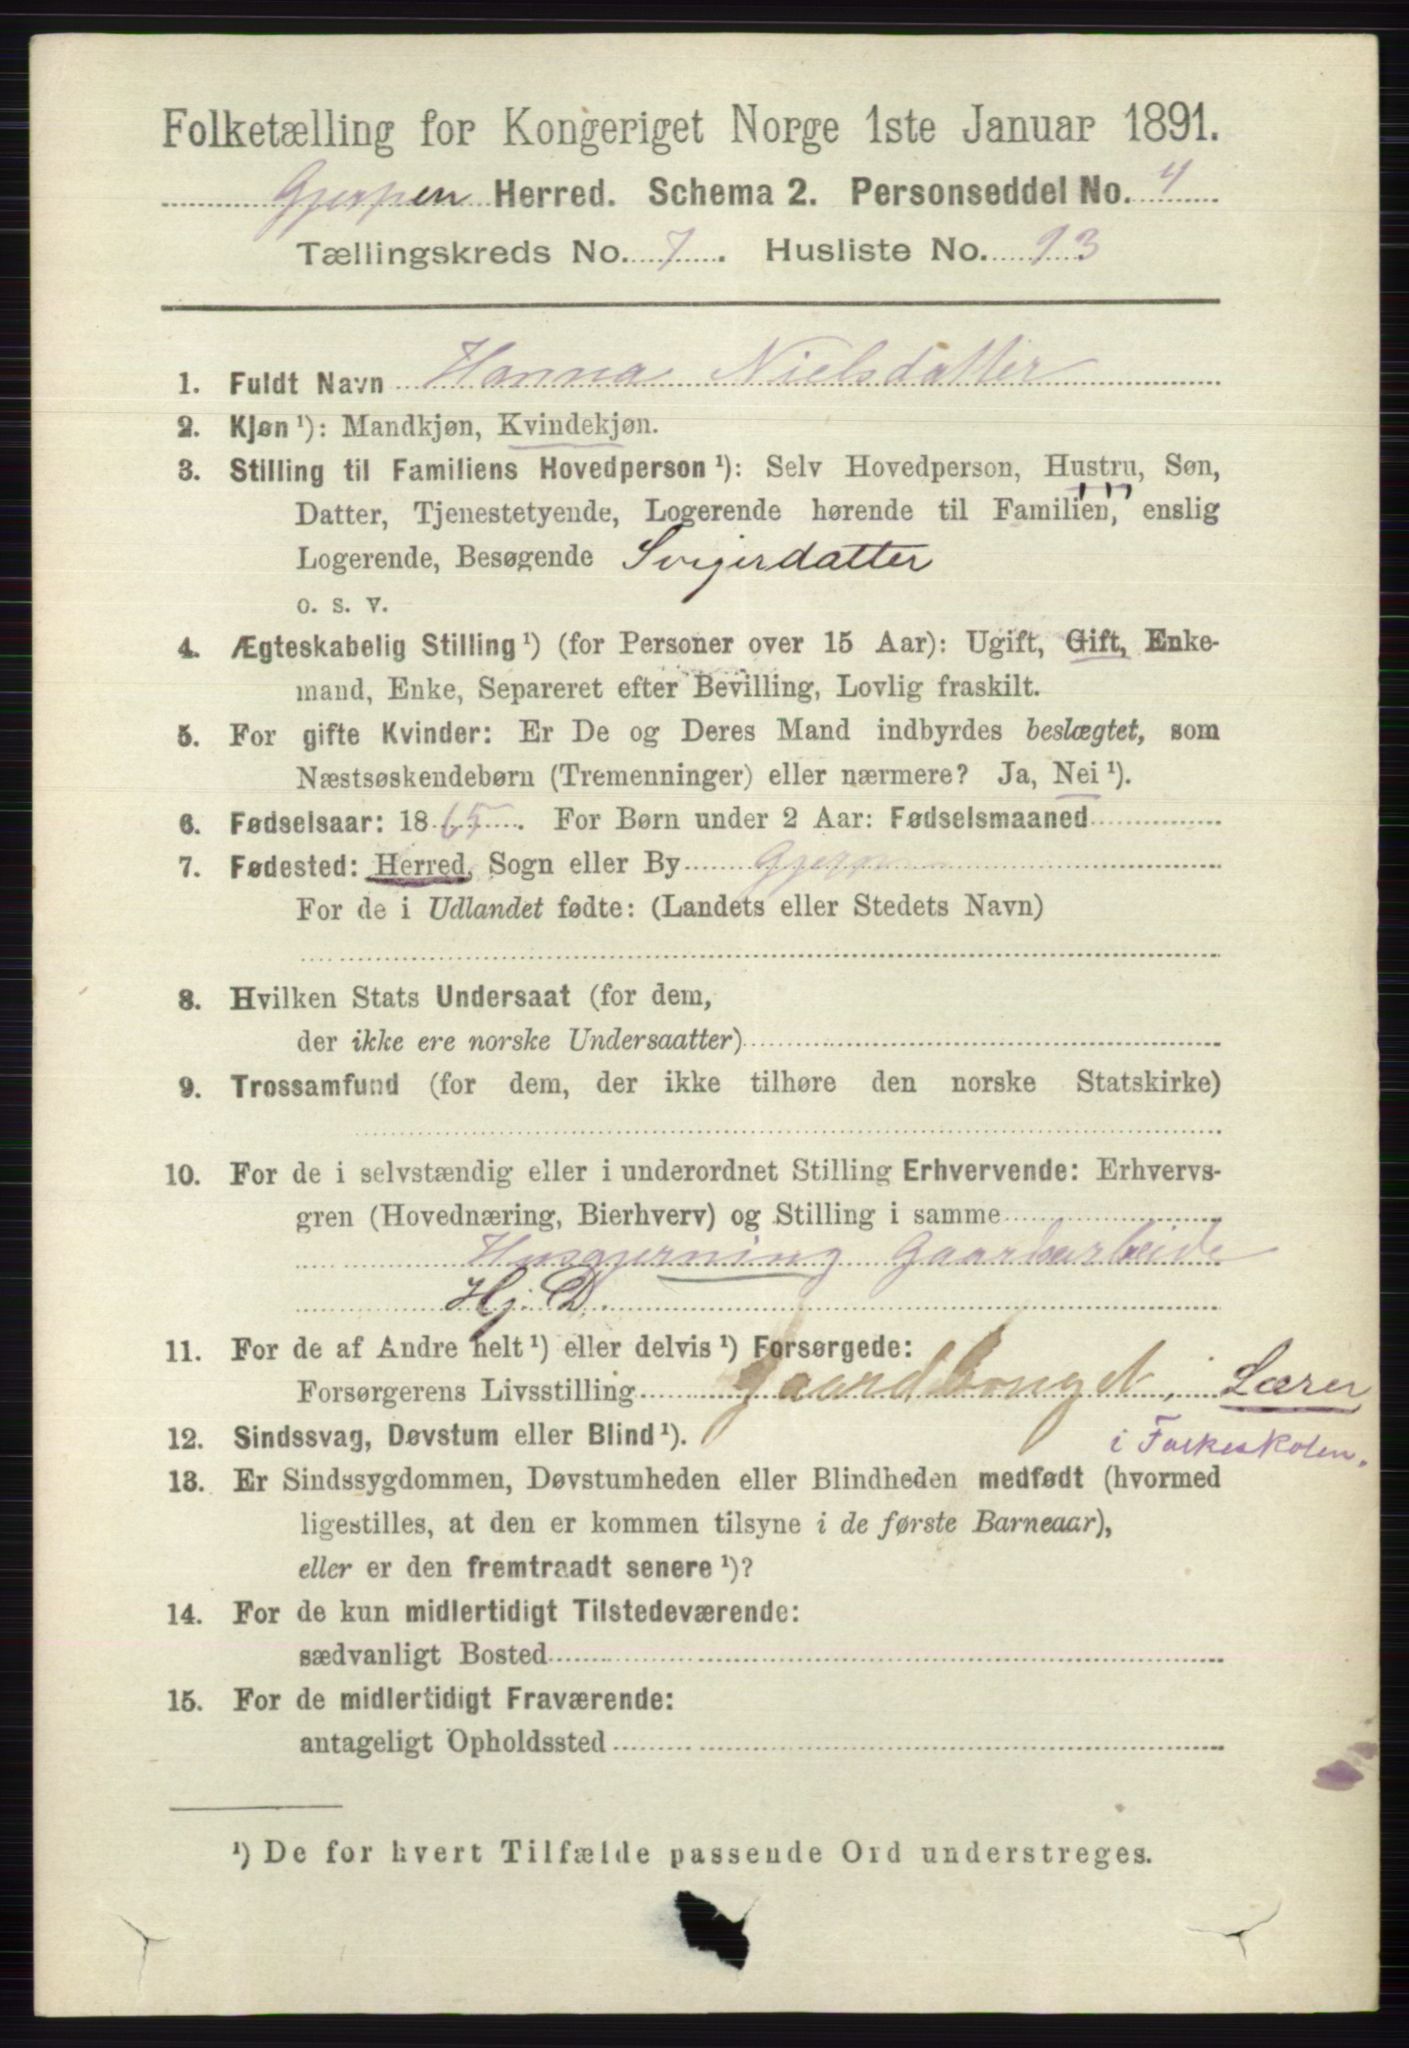 Folketælling for Kongeriget Norge 1ste Januar 1891.
Gjerpen Herred. Schema 2. Personseddel No. 4
Tællingskreds No. 7. Husliste No. 93
1. Fuldt Navn Hanna Nielsdatter
2. Kjøn ¹): Mandkjøn, Kvindekjøn.
3. Stilling til Familiens Hovedperson ¹): Selv Hovedperson, Hustru, Søn,
Datter, Tjenestetyende, Logerende hørende til Familien, enslig
Logerende, Besøgende Svigerdatter
o. s. v.
4. Ægteskabelig Stilling ¹) (for Personer over 15 Aar): Ugift, Gift, Enke-
mand, Enke, Separeret efter Bevilling, Lovlig fraskilt.
5. For gifte Kvinder: Er De og Deres Mand indbyrdes beslægtet, som
Næstsøskendebørn (Tremenninger) eller nærmere? Ja, Nei ¹).
6. Fødselsaar: 1865. For Børn under 2 Aar: Fødselsmaaned
7. Fødested: Herred, Sogn eller By Gjerpen
For de i Udlandet fødte: (Landets eller Stedets Navn)
8. Hvilken Stats Undersaat (for dem,
der ikke ere norske Undersaatter)
9. Trossamfund (for dem, der ikke tilhøre den norske Statskirke)
10. For de i selvstændig eller i underordnet Stilling Erhvervende: Erhvervs-
gren (Hovednæring, Bierhverv) og Stilling i samme
Husgjerning Gaardarbeide
Hj. D.
11. For de af Andre helt ¹) eller delvis ¹) Forsørgede:
Forsørgerens Livsstilling Gaardbruget, Lærer
i Folkeskolen.
12. Sindssvag, Døvstum eller Blind ¹).
13. Er Sindssygdommen, Døvstumheden eller Blindheden medfødt (hvormed
ligestilles, at den er kommen tilsyne i de første Barneaar),
eller er den fremtraadt senere ¹)?
14. For de kun midlertidigt Tilstedeværende:
sædvanligt Bosted
15. For de midlertidigt Fraværende:
antageligt Opholdssted
¹) De for hvert Tilfælde passende Ord understreges.